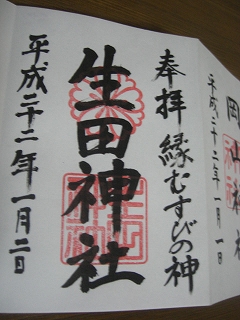 奉拝 縁むすびの神
生田神社
平成二十二年一月二日
岡山神社
平成二十二年一月一日